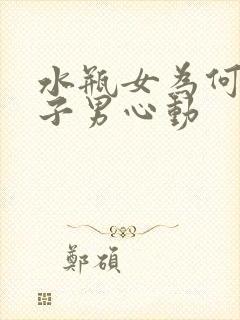 水瓶女為何
子男心動
鄭碩